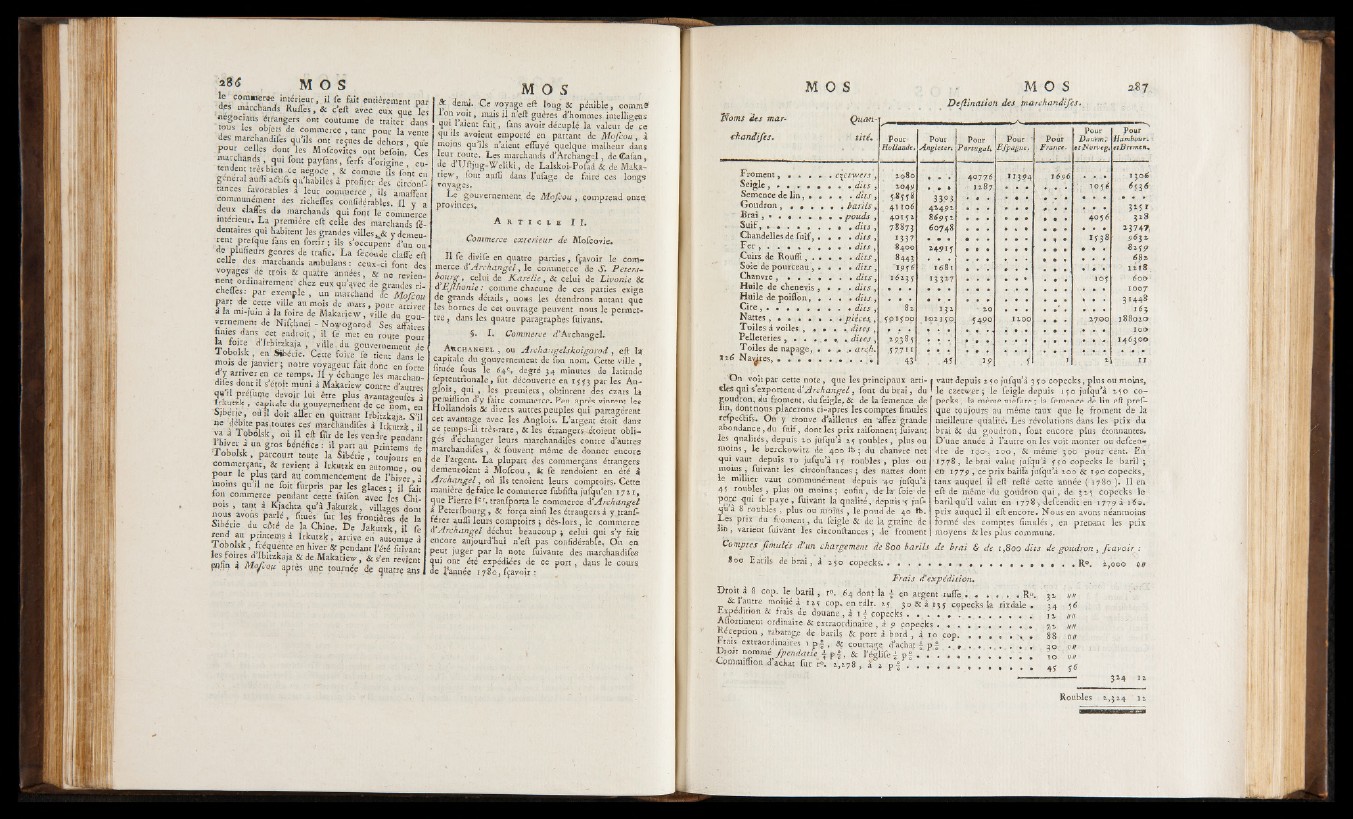 286 M O S
le commerce intérieur, il se fait entièrement par
des marchands Russes, & c'est avec eux que les
négocians étrangers ont coutume de traiter dans
tous les objets de commerce, tant pour la vente
des marchandises qu'ils ont reçues de dehors, que
pour celles dont les Moscovites ont besoin. Ces
marchands, qui sont paysans, serfs d'origine, entendent
très bien ce négoce, & comme ils sont en
général aussi actifs qu'habiles à profiter des circonstances
favorables à leur commerce, ils amassent
communément des richesses considérables. Il y a
deux classes de marchands qui font le commerce
intérieur. La première est celle des marchands sédentaires
qui habitent les grandes villes & y demeurent
presque sans en sortir; ils s'occupent d'un ou
de plusieurs genres de trafic. La seconde classe est
celle des marchands ambulans : ceux-ci font des
voyages de trois & quatre années, & ne reviennent
ordinairement chez eux qu'avec de grandes richesses:
par exemple, un marchand de Moscou
part de cette ville au mois de mars, pour arriver
à la mi-juin à la foire de Makariew, ville du gouvernement
de Nischnei-Nowogorod. Ses affaires
finies dans cet endroit, il se met en route pour
la foire d'Irbitzkaja, ville du gouvernement de
Tobolsk, en Sibérie. Cette foire se tient dans le
mois de janvier; notre voyageur fait donc en sorte
d'y arriver en ce temps. Il y échange les marchandises
dont il s'étoit muni à Makariew contre d'autres
qu'il présume devoir lui être plus avantageuses à
Irkutzk, capitale du gouvernement de ce nom, en
Sibérie, où il doit aller en quittant Irbitzkaja. S'il
ne débite pas toutes ces marchandises à Irkutzk, il
va à Tobolsk, où il est sûr de les vendre pendant
l'hiver à un gros bénéfice: il part au printems de
Tobolsk, parcourt toute la Sibérie, toujours en
commerçant, & revient à Irkutzk en automne, ou
pour le plus tard au commencement de l'hiver, à
moins qu'il ne soit surpris par les glaces; il fait
son commerce pendant cette saison avec les Chinois,
tant à Kjachta qu'à Jakutzk, villages dont
nous avons parlé, situés sur les frontières de la
Sibérie du côté de la Chine. De Jakutzk, il se
rend au printems à Irkutzk, arrive en automne à
Tobolsk, fréquente en hiver & pendant l'été suivant
les foires d'Irbitzkaja & de Makariew, & s'en revient
enfin à Moscou après une tournée de quatre ans
M O S
& demi. Ce voyage est long & pénible, comme
l'on voit, mais il n'est guères d'hommes intelligens
qui l'aient fait, sans avoir décuplé la valeur de ce
qu'ils avoient emporté en partant de Moscou, à
moins qu'ils n'aient essuyé quelque malheur dans
leur route. Les marchands d'Archangel, de Casan,
de d'Ustjug-Weliki, de Lalskoi-Posad & de Makariew,
sont aussi dans l'usage de faire ces longs
voyages.
Le gouvernement de Moscou, comprend onze
provinces.
A R T I C L E I I.
Commerce extérieur de Moscovie.
Il se divise en quatre parties, sçavoir le commerce
d'Archangel, le commerce de S. Petersbourg,
celui de Karelie, & celui de Livonie &
d'Esthonie: comme chacune de ces parties exige
de grands détails, nous les étendrons autant que
les bornes de cet ouvrage peuvent nous le permettre,
dans les quatre paragraphes suivans.
§. I. Commerce d'Archangel.
ARCHANGEL, ou Archangelskoigorod, est la
capitale du gouvernement de son nom. Cette ville,
située sous le 64e. degré 34 minutes de latitude
septentrionale, fut découverte en 1553 par les Anglois,
qui, les premiers, obtinrent des czars la
permission d'y faire commerce. Peu après vinrent les
Hollandois & divers autres peuples qui partagèrent
cet avantage avec les Anglois. L'argent étoit dans
ce temps-là très-rare, & les étrangers étoient obligés
d'échanger leurs marchandises contre d'autres
marchandises, & souvent même de donner encore
de l'argent. La plupart des commerçans étrangers
demeuroient à Moscou, & se rendoient en été à
Archangel, où ils tenoient leurs comptoirs. Cette
manière de faire le commerce subsista jusqu'en 1721,
que Pierre Ier. transporta le commerce d'Archangel
à Petersbourg, & força ainsi les étrangers à y transférer
aussi leurs comptoirs; dès-lors, le commerce
d'Archangel déchut beaucoup; celui qui s'y fait
encore aujourd'hui n'est pas considérable. On en
peut juger par la note suivante des marchandises
qui ont été expédiées de ce port, dans le cours
de l'année 1780, sçavoir :
M O S M O S 287
Destination des marchandises.
Noms des marchandises. Quantité. Pour Hollande. Pour Angleter. Pour Portugal. Pour Espagne. Pour France. Pour Danem. et Norveg. Pour Hambour. et Bremen.
Froment, . . . . . czetwers, 2980 . . . 40776 11394 1696 . . . 1306
Seigle, . . . . . . . . dits, 2049 . . . 1287 . . . . . . 1056 6536
Semence de lin, . . . . . dits, 58558 3393 . . . . . . . . . . . . . . .
Goudron, . . . . . . . barils, 41106 42492 . . . . . . . . . . . . 3251
Brai, . . . . . . . . pouds, 40152 86952 . . . . . . . . . 4056 328
Suif, . . . . . . . . . dits, 78873 60748 . . . . . . . . . . . . 23747
Chandelles de suif, . . . . dits, 1337 . . . . . . . . . . . . 1538 9632
Fer, . . . . . . . . . dits, 8400 24915 . . . . . . . . . . . . 8259
Cuirs de Roussi, . . . . . dits, 8443 . . . . . . . . . . . . . . . 682
Soie de pourceau, . . . . . dits, 1956 1681 . . . . . . . . . . . . 1218
Chanvre, . . . . . . . . dits, 16235 13327 . . . . . . . . . 105 600
Huile de chenevis, . . . . dits, . . . . . . . . . . . . . . . . . . 1007
Huile de poisson, . . . . . dits, . . . . . . . . . . . . . . . . . . 31448
Cire, . . . . . . . . . dits, 82 132 20 . . . . . . . . . 163
Nattes, . . . . . . . . pièces, 591500 102150 5490 1200 . . . 2790 188020
Toiles à voiles, . . . . . dites, . . . . . . . . . . . . . . . . . . 100
Pelleteries, . . . . . . dites, 29385 . . . . . . . . . . . . . . . 146300
Toiles de napage, . . . . . arch. 57711 . . . . . . . . . . . . . . . . . .
126 Navires, . . . . . . . . . 43 45 19 5 1 2 11
On voit par cette note, que les principaux articles
qui s'exportent d'Archangel, sont du brai, du
goudron, du froment, du seigle, & de la semence de
lin, dont nous placerons ci-après les comptes simulés
respectifs. On y trouve d'ailleurs en assez grande
abondance, du suif, dont les prix raisonnent suivant
les qualités, depuis 20 jusqu'à 25 roubles, plus ou
moins, le berckowitz de 400 lb; du chanvre net
qui vaut depuis 10 jusqu'à 15 roubles, plus ou
moins, suivant les circonstances; des nattes dont
le millier vaut communément depuis 40 jusqu'à
45 roubles, plus ou moins; enfin, de la soie de
porc qui se paye, suivant la qualité, depuis 5 jusqu'à
8 roubles, plus ou moins, le poud de 40 lb.
Les prix du froment, du seigle & de la graine de
lin, varient suivant les circonstances; le froment
vaut depuis 250 jusqu'à 350 copecks, plus ou moins,
le czetwer; le seigle depuis 150 jusqu'à 250 copecks,
la même mesure; la semence de lin est presque
toujours au même taux que le froment de la
meilleure qualité. Les révolutions dans les prix du
brai & du goudron, sont encore plus étonnantes.
D'une année à l'autre on les voit monter ou descendre
de 100, 200, & même 300 pour cent. En
1778, le brai valut jusqu'à 550 copecks le baril;
en 1779, ce prix baissa jusqu'à 200 & 190 copecks,
taux auquel il est resté cette année (1780). Il en
est de même du goudron qui, de 325 copecks le
baril qu'il valut en 1778, descendit en 1779 à 160,
prix auquel il est encore. Nous en avons néanmoins
formé des comptes simulés, en prenant les prix
moyens & les plus communs.
Comptes simulés d'un chargement de 800 barils de brai & de 1,800 dits de goudron, sçavoir :
800 Barils de brai, à 250 copecks. . . . . . . . . . . . . . . . . R°. 2,000 00
Frais d'expédition.
Droit à 8 cop. le baril, r°. 64 dont la ½ en argent russe . . . . . . R°. 32 00
& l'autre moitié à 125 cop. en rdlr. 25 30 & à 135 copecks la rixdale . 34 56
Expédition & frais de douane, à 1½ copecks . . . . . . . . . . . 12 00
Assortiment ordinaire & extraordinaire, à 9 copecks . . . . . . . . . 72 00
Réception, rabatage de barils & port à bord, à 10 cop. . . . . . . . 88 00
Frais extraordinaires 1 p%, & courtage d'achat ½ p% . . . . . . . . . 30 00
Droit nommé spendatie ¼ p%, & l'église ¼ p% . . . . . . . . . . . 10 00
Commission d'achat sur r°. 2,278, à 2 p% . . . . . . . . . . . . 45 56
324 12
Roubles 2,324 12